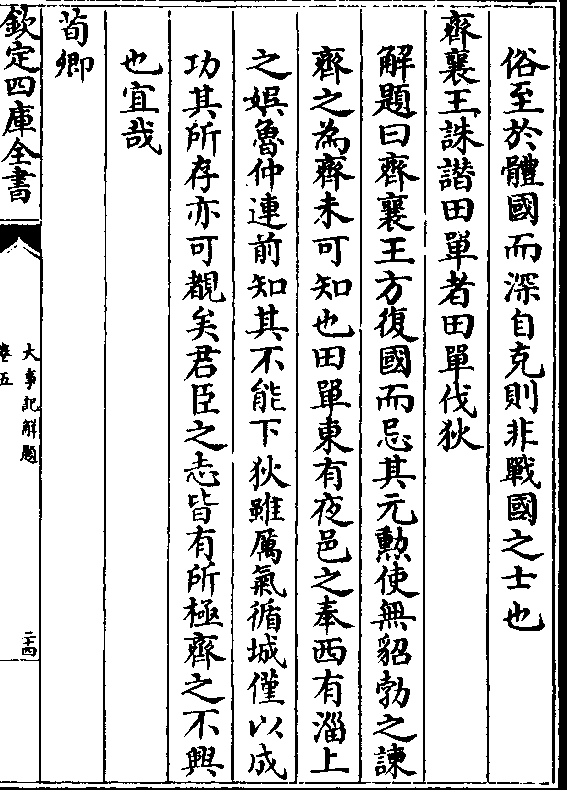 俗至於體國而深自克則非戰國之士也
齊襄王誅譖田單者田單伐狄
解題曰齊襄王方復國而忌其元勲使無貂勃之諫
齊之為齊未可知也田單東有夜邑之奉西有淄上
之娯魯仲連前知其不能下狄雖厲氣循城僅以成
功其所存亦可覩矣君臣之志皆有所極齊之不興
也宜哉
荀卿
欽定四庫全書
大事記解題
卷五
二十四